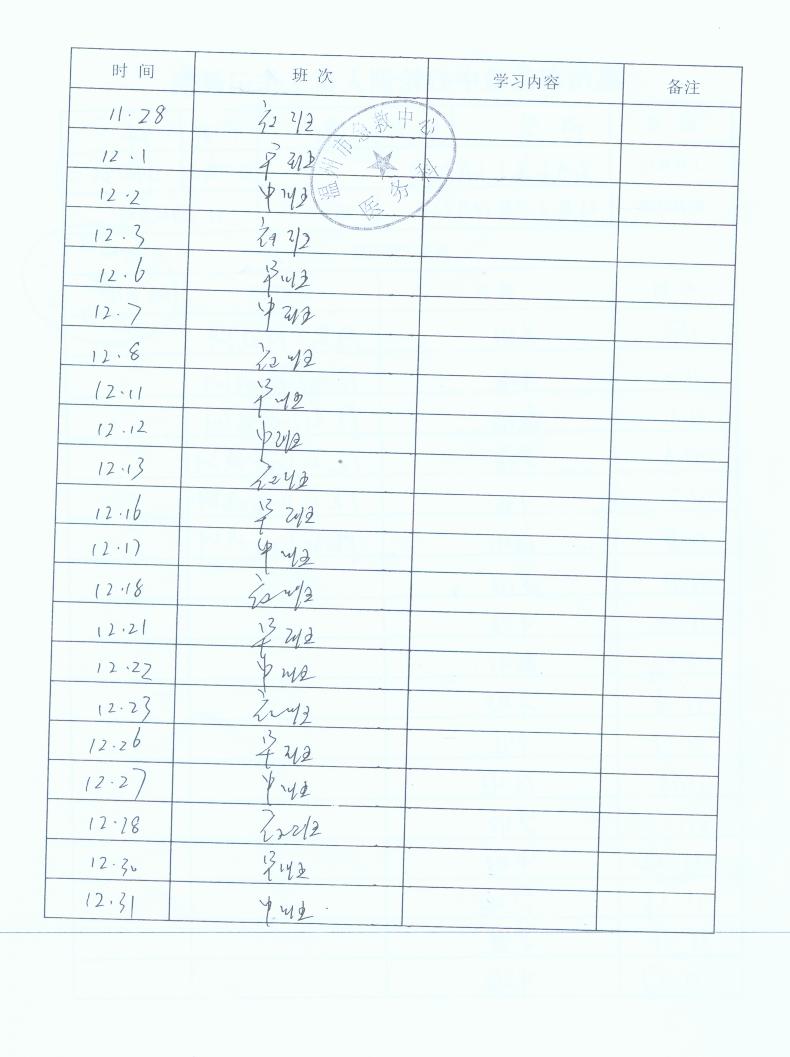 时 间 班 次 学习内容 备注
11.28 夜班
温州市急救中心
医务科
12.1 早班
12.2 中班
12.3 夜班
12.6 早班
12.7 中班
12.8 夜班
12.11 早班
12.12 中班
12.13 夜班
12.16 早班
12.17 中班
12.18 夜班
12.21 早班
12.22 中班
12.23 夜班
12.26 早班
12.27 中班
12.28 夜班
12.30 早班
12.31 中班